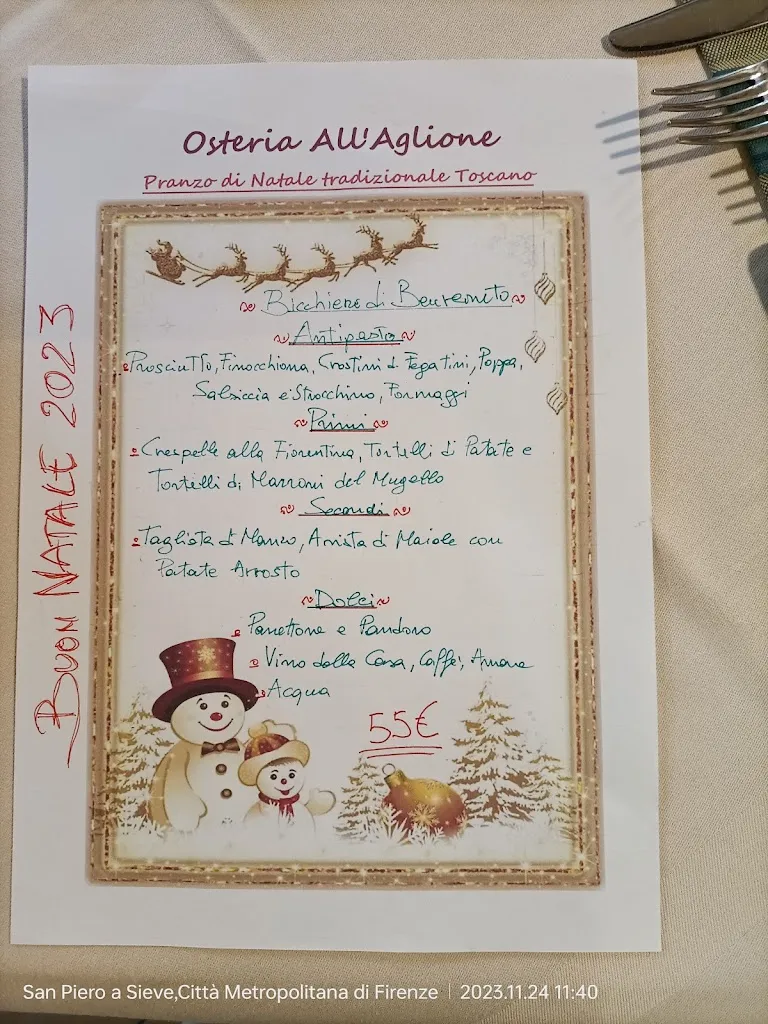 Osteria All'Aglione
Pranzo di Natale tradizionale Toscano
Bicchiere di Benvenuto
Antipasto
Prosciutto, Finocchiona, Crostini di Fegatini, Poppa,
Salsiccia e Stracchino, Formaggi
Primi
Crespelle alla Fiorentina, Tortelli di Patate e
Tortelli di Marroni del Mugello
Secondi
Tagliata di Manzo, Arista di Maiale con
Patate Arrosto
Dolci
Panettone e Pandoro
Vino della Casa, Caffè, Amaro
Acqua
55€
BUON NATALE 2023
San Piero a Sieve,Città Metropolitana di Firenze | 2023.11.24 11:40